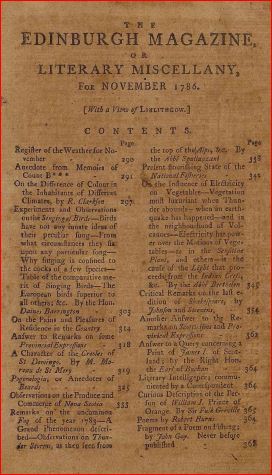 THE
EDINBURGH MAGAZINE,
OR
LITERARY MISCELLANY,
FOR NOVEMBER 1786.
[With a View of LINLITHGOW.]
CONTENTS.
Page
Register of the Weather for No-
vember 290
Anecdote from Memoirs of
Count B*** 291
On the Difference of Colour in
the Inhabitants of Different
Climates, by R. Clarkson 297
Experiments and Observations
on the Singing of Birds—Birds
have not any innate ideas of
their peculiar song—From
what circumstances they fix
upon any particular song—
Why singing is confined to
the cocks of a few species—
Table of the comparative me-
rit of Singing Birds—The
European birds superior to
all others, &c. By the Hon.
Daines Barrington 303
On the Pains and Pleasures of
Residence in the Country 314
Answer to Remarks on some
Provincial Expressions 318
A Character of the Creoles of
St Domingo. By M. Mo-
reau de St Mery 319
Pogonologia, or Anecdotes of
Beards 325
Observations on the Produce and
Commerce of Nova Scotia 333
Remarks on the uncommon
Fog of the year 1783—A
Grand Phenomenon descri-
bed—Observations on Thun-
der Storms, as they seen from
Page
the top of the Alps, &c. By
the Abbé Spallanzani 338
Present promising State of the
National Fisheries 342
On the Influence of Electricity
on Vegetables—Vegetation
most luxuriant when Thun-
der abounds—when an earth-
quake has happened—and in
the neighbourhood of Vol-
canoes—Electricity has pow-
er over the Motions of Vege-
tables
345
Critical Remarks on the last e-
dition of Shakespeare, by
Johnson and Steevens, 354
Another Answer to the Re-
marks on Scotticisms and Pro-
vincial Expressions 362
Answer to a Query concerning a
Print of James I. of Scot-
land; by the Right Hon.
the Earl of Buchan 364
Literary Intelligence, commu-
nicated by a Correspondent 364
Curious Description of the Per-
son of William I. Prince of
Orange. By Sir Fulk Greville 365
Poems by Robert Burns. 364
Fragment of a Poem on Fishing;
by John Gay. Never before
published 368